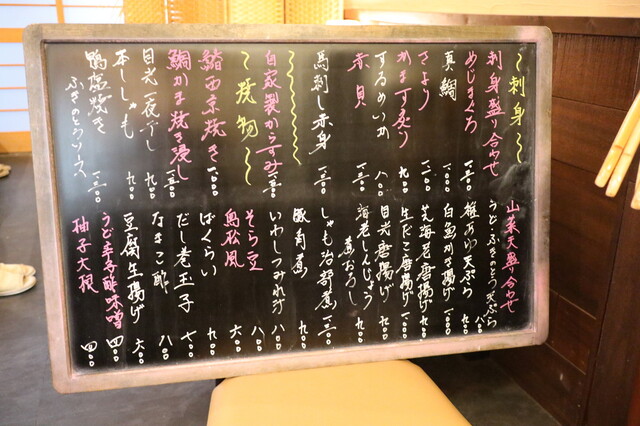 〜刺身〜
刺身盛り合わせ
めじまぐろ 一、三〇〇
真鯛 一、〇〇〇
さより 一、二〇〇
かます炙り 一、〇〇〇
するめいか 八〇〇
赤貝 一、三〇〇
馬刺し赤身 一、三〇〇
自家製からすみ 一、三〇〇
〜焼物〜
鰆西京焼き 一、〇〇〇
鯛かま焼き浸し 一、三〇〇
目光一夜干し 九〇〇
本ししゃも 九〇〇
鴨塩焼き
ふきのとうソース 一、三〇〇
山菜天盛り合わせ
うど・ふきのとう天ぷら 八〇〇
稚あゆ天ぷら 九〇〇
白魚かき揚げ 一、〇〇〇
芝海老唐揚げ 九〇〇
生だこ唐揚げ 一、〇〇〇
目光唐揚げ 九〇〇
海老しんじょう
蕎おろし 九〇〇
しゃも治部煮 一、三〇〇
豚角煮 九〇〇
いわしつみれ汁 八〇〇
そら豆 八〇〇
鳥松風 六〇〇
ばくらい 九〇〇
だし巻玉子 七〇〇
なまこ酢 八〇〇
豆腐生揚げ 六〇〇
うど辛子酢味噌 四〇〇
柚子大根 四〇〇